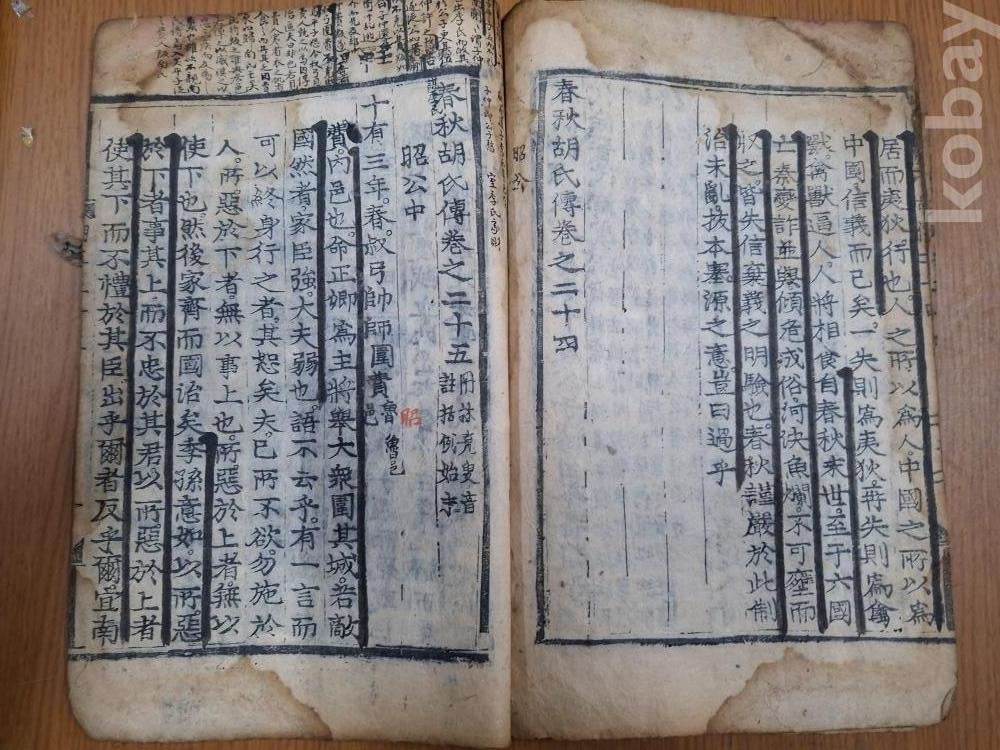 居而夷狄行也人之所以爲人中國之所以爲
中國信義而已矣一失則爲夷狄再失則爲禽
獸禽獸逼人人將相食自春秋末世至于六國
亡秦變詐並興傾危成俗河决魚爛不可壅而
收之皆失信棄義之明驗也春秋謹嚴於此制
治未亂拔本塞源之意豈曰過乎
春秋胡氏傳卷之二十四
昭公
春秋胡氏傳卷之二十五 附林堯叟音註括例始末
昭公中
昭
十有三年春叔弓帥師圍費 魯邑
魯邑
費內邑也命正卿爲主將舉大衆圍其城若敵
國然者家臣強大夫弱也語不云乎有一言而
可以終身行之者其恕矣夫己所不欲勿施於
人所惡於下者無以事上也所惡於上者無以
使下也然後家齊而國治矣季孫意如以所惡
於下者事其上而不忠於其君以所惡於上者
使其下而不禮於其臣出乎爾者反乎爾宜南
kobay